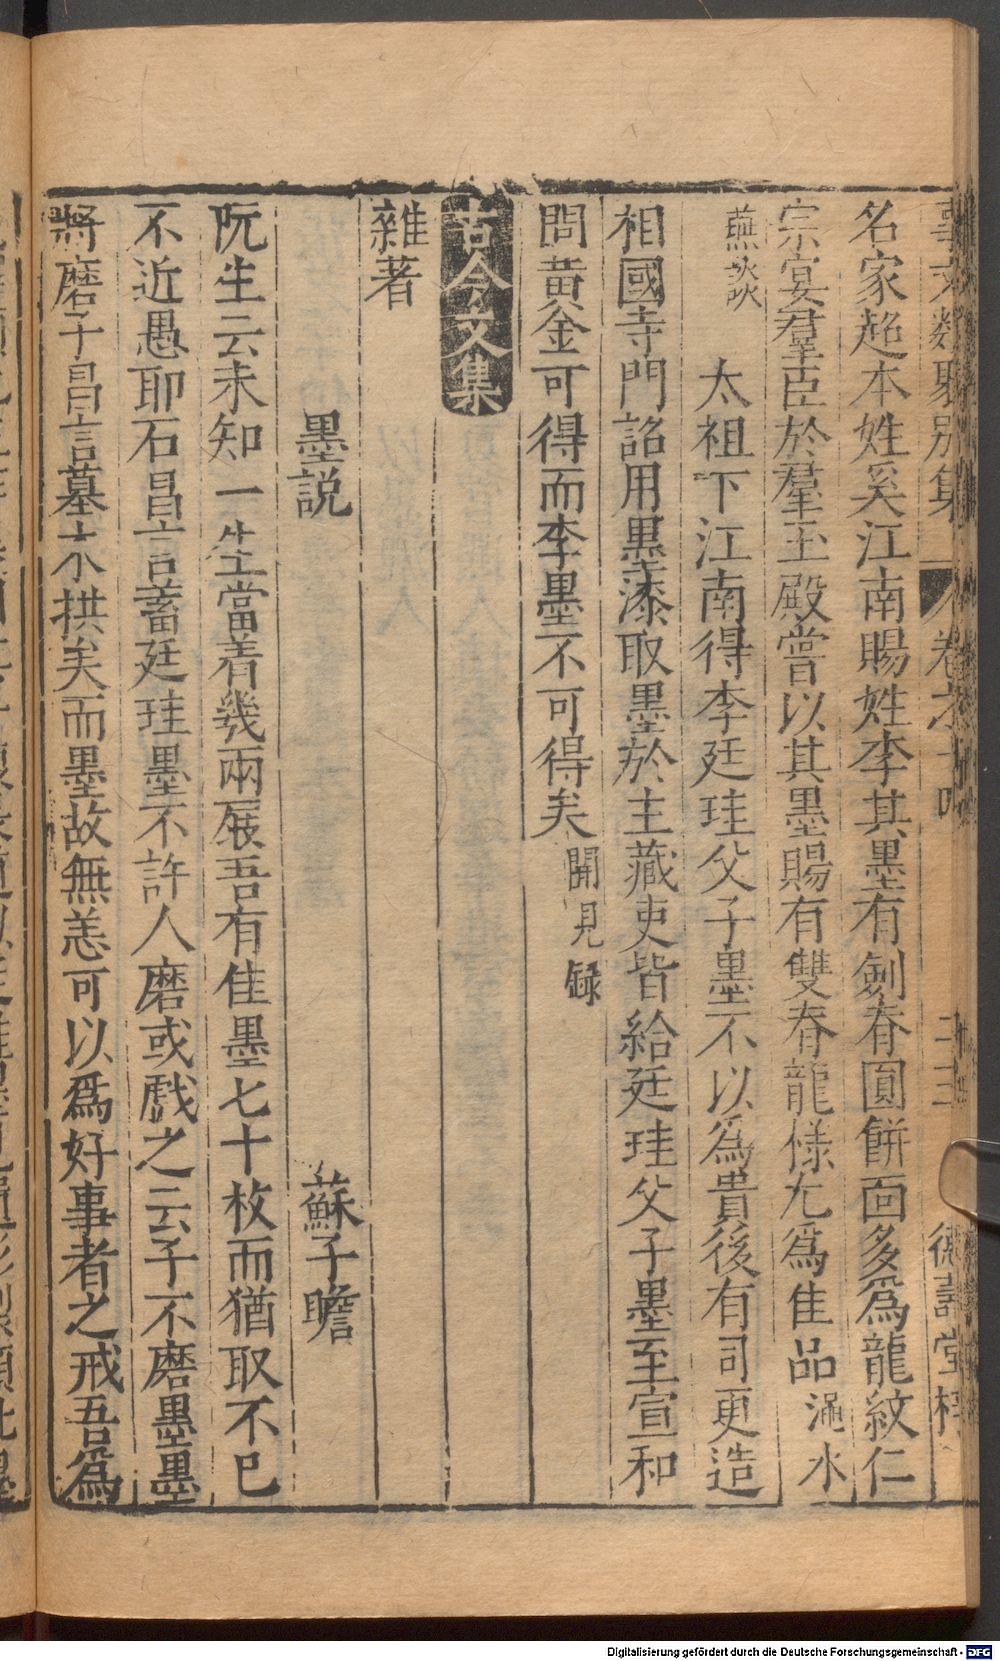 事文類聚別集
卷之十四
德壽堂梓
名家超本姓奚江南賜姓李其墨有劍春圓餅面多爲龍紋仁
宗宴羣臣於羣玉殿嘗以其墨賜有雙春龍樣尤爲佳品澠水
燕談
太祖下江南得李廷珪父子墨不以爲貴後有司更造
相國寺門詔用黒漆取墨於主藏吏皆給廷珪父子墨至宣和
間黃金可得而李墨不可得矣聞見録
古今文集
雜著
墨説 蘇子瞻
阮生云未知一生當着幾兩屐吾有佳墨七十枚而猶取不已
不近愚耶石昌言蓄廷珪墨不許人磨或戲之云子不磨墨墨
將磨子昌言墓木拱矣而墨故無恙可以爲好事者之戒吾爲
Digitalisierung gefördert durch die Deutsche Forschungsgemeinschaft - DFG